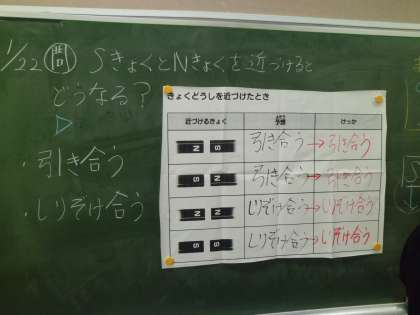 1/22 問 SきょくとNきょくを近づけると
どうなる?
・引き合う
・しりぞけ合う
きょくどうしを近づけたとき
近づけるきょく 予想 けっか
N S 引き合う→引き合う
S N 引き合う→引き合う
N N しりぞけ合う→しりぞけ合う
S S しりぞけ合う→しりぞけ合う